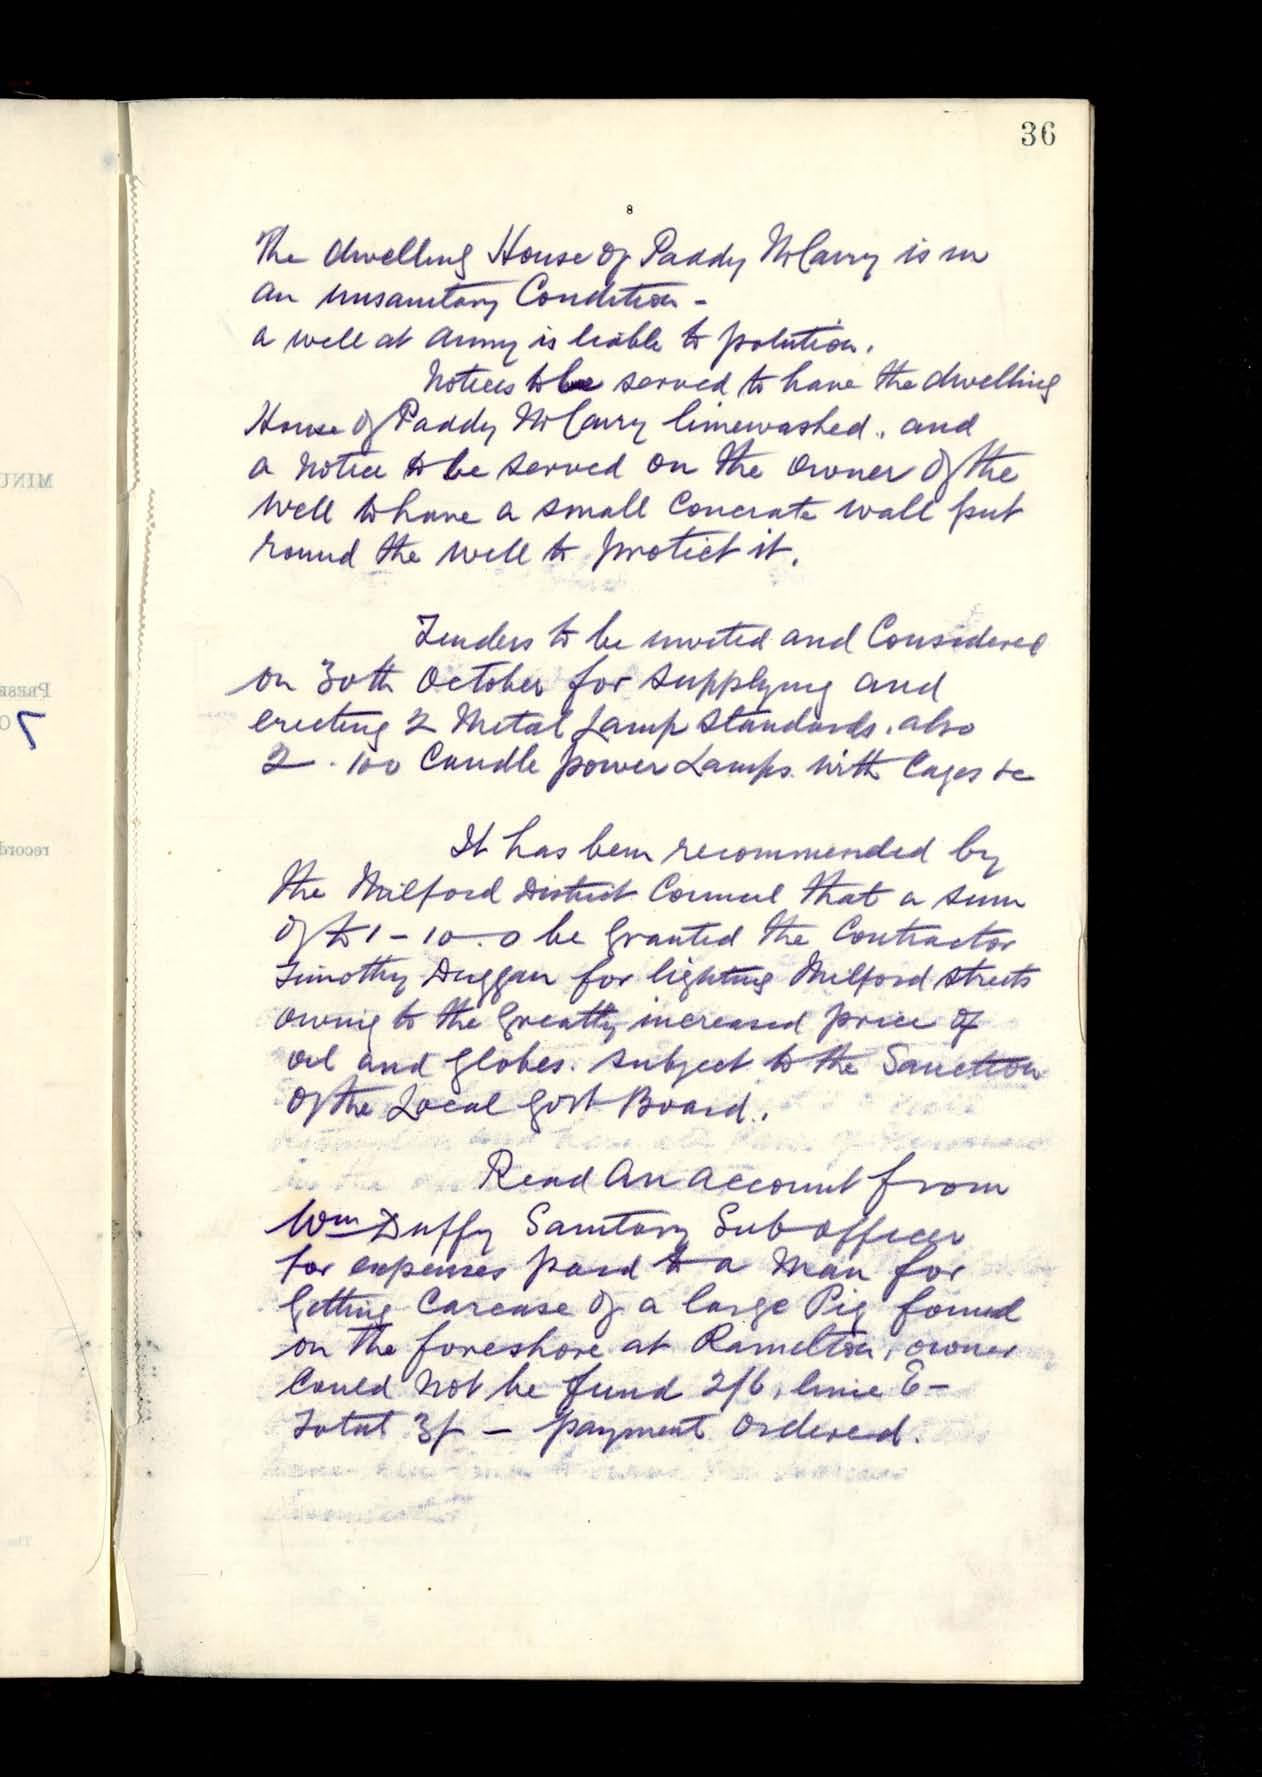 36
8
The dwelling House of Paddy McGarry is in
an unsanitary Condition -
a well at Army is liable to polution.
Notices to be served to have the dwelling
House of Paddy McGarry limewashed, and
a Notice to be served on the owner of the
Well to have a small Concrate wall put
round the well to protict it.
Tenders to be invited and Considered
on 30th October for supplying and
erecting 2 Metal Lamp Standards, also
2 - 100 Candle power Lamps with Cages &c
It has been recommended by
the Milford District Council that a sum
of £1 - 10 - 0 be granted the Contractor
Timothy Duggan for lighting Milford streets
owing to the Greatly increased price of
oil and Globes. subject to the Sanction
of the Local Govt Board.
Read an account from
Wm Duffy Sanitary Sub officer
for expenses paid to a Man for
Getting Carcase of a large Pig found
on the foreshore at Ramelton, owner
Could not be fund 2/6, lime 6-
Total 3/- - payment ordered.
MINU
PRESE
7
record